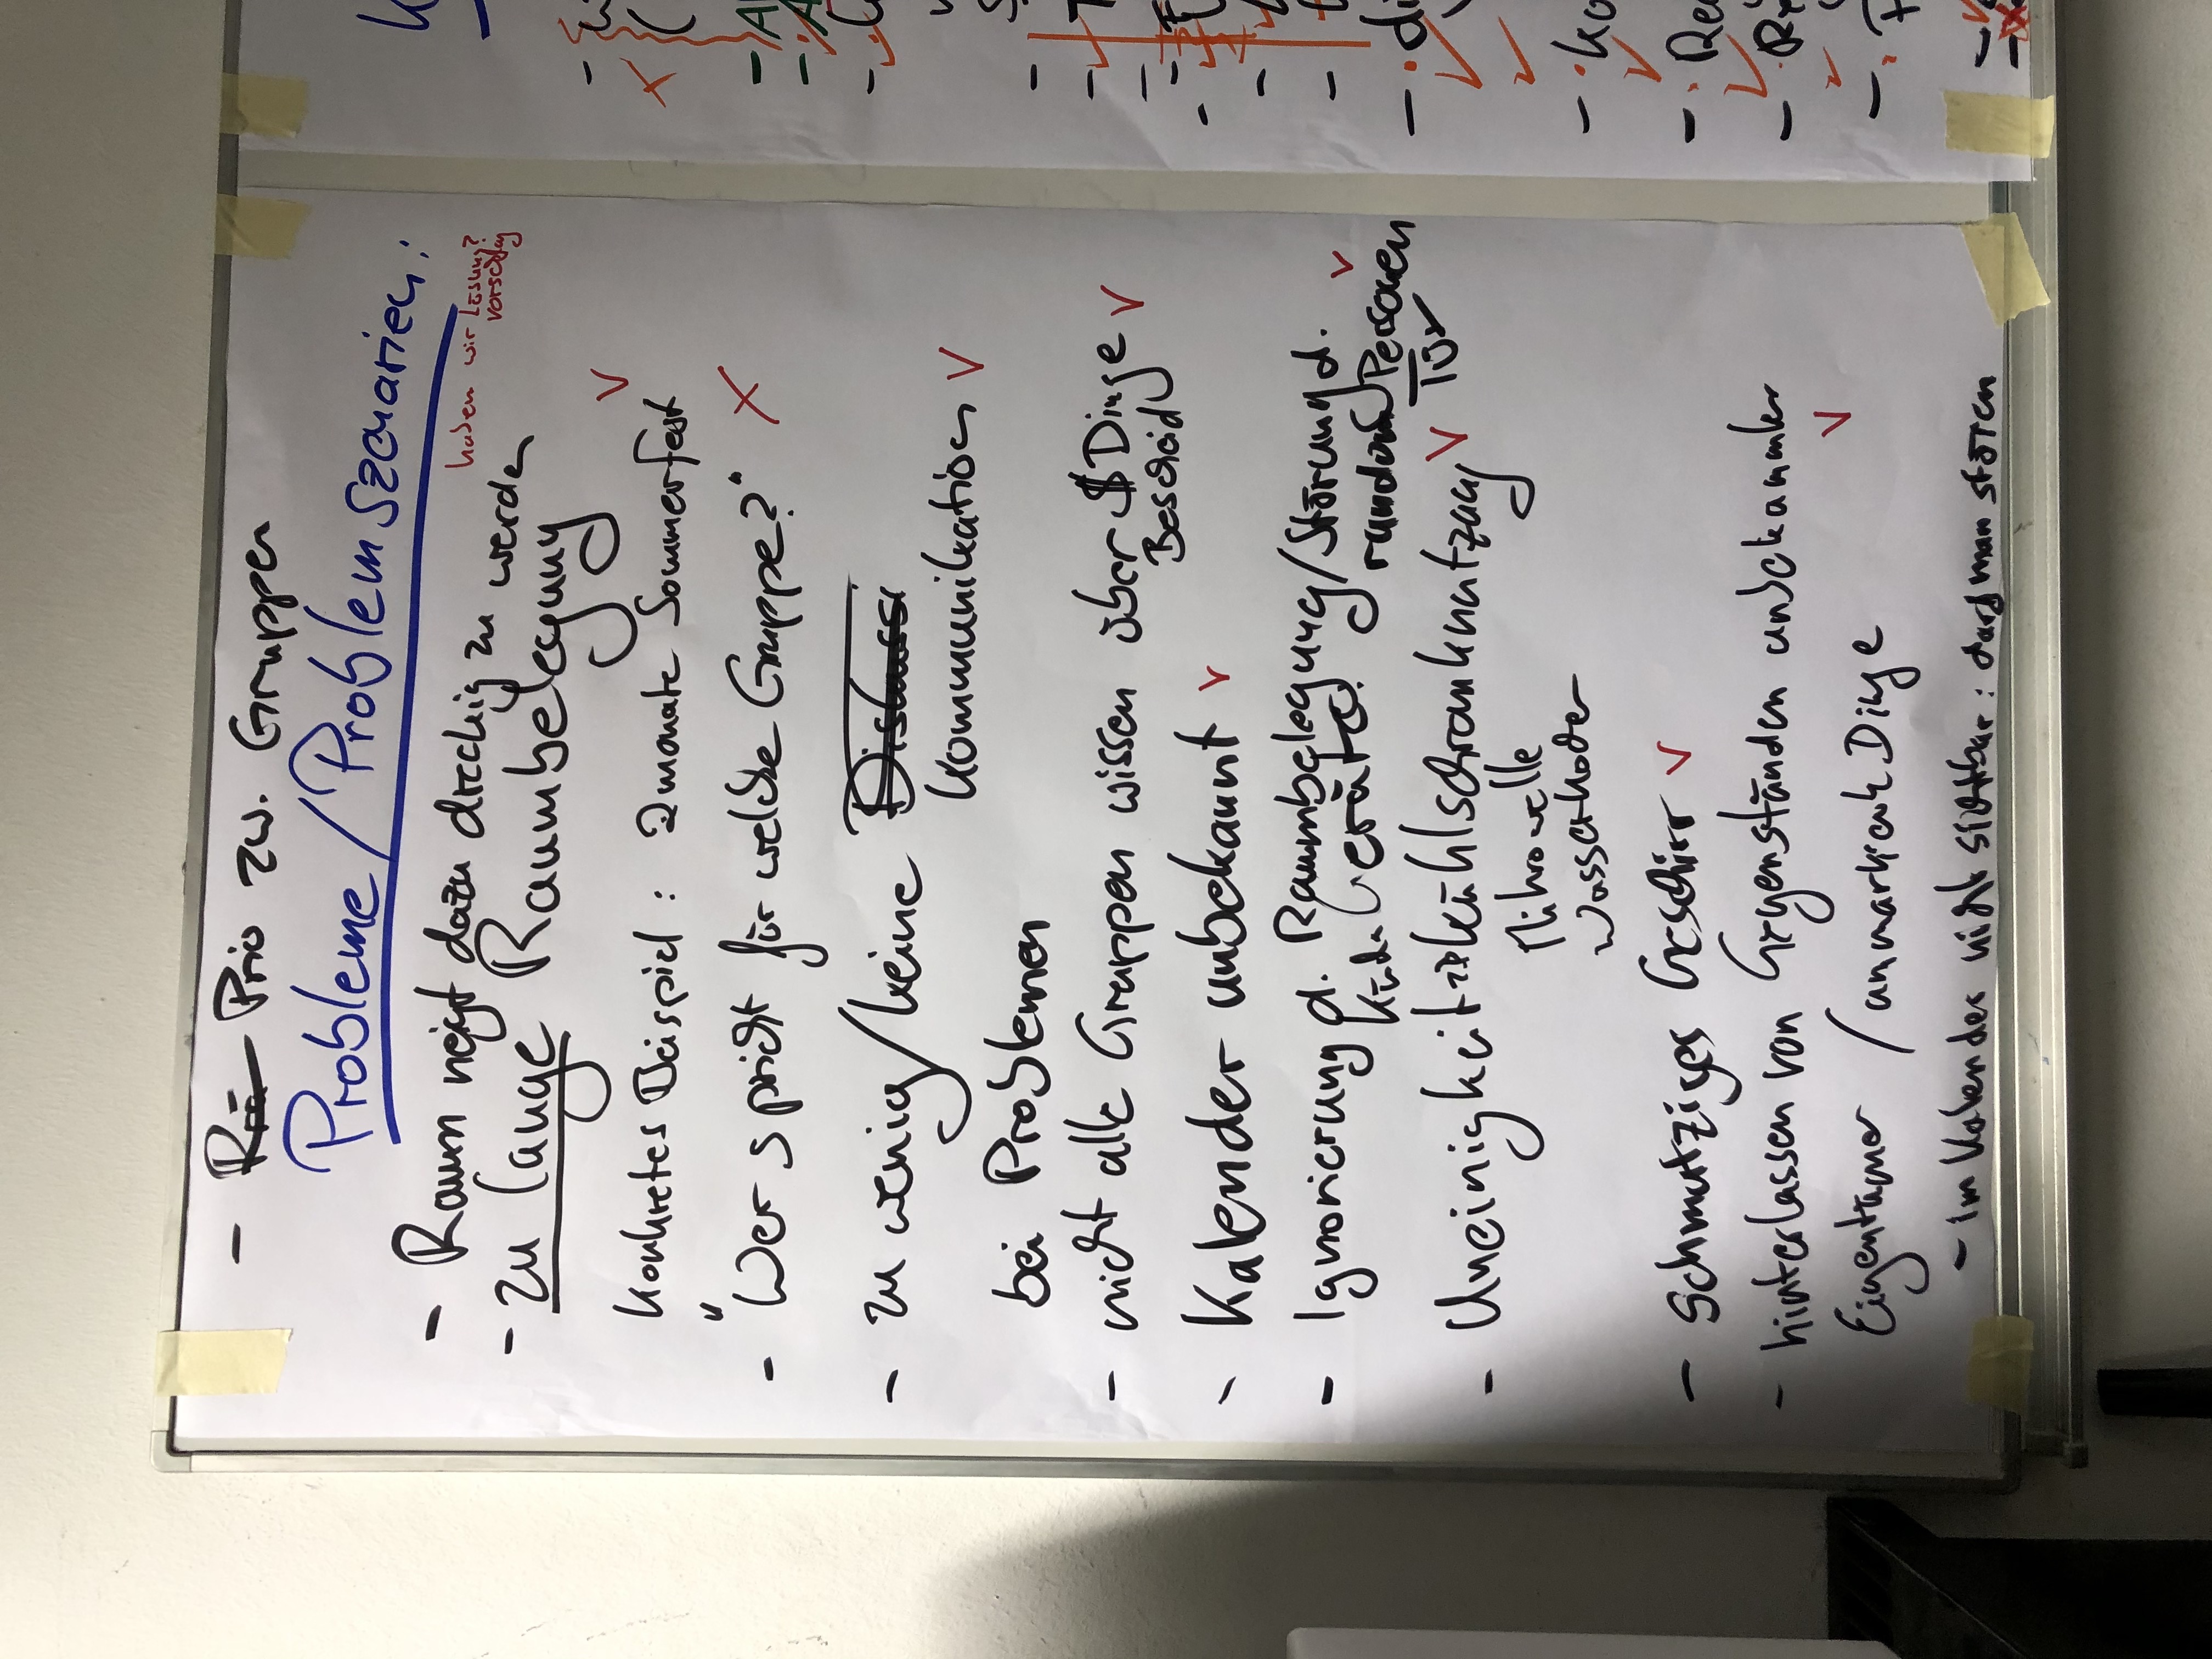 - Prio zw. Gruppen
Probleme / Problemszenarien:
haben wir Lösung?
vorschlag
- Raum neigt dazu dreckig zu werden
- zu lange Raumbelegung ✓
konkretes Beispiel: 2 monate Sommerfest
- "Wer spricht für welche Gruppe?" ✗
- zu wenig/keine Diskussi
Kommunikation ✓
bei Problemen
- nicht alle Gruppen wissen über $Dinge ✓
Bescheid
- Kalender unbekannt ✓
- Ignorierung d. Raumbelegung/Störung d. ✓
Geräte? random Personen
Tür
- Uneinigkeit Kühlschranknutzung ✓
Mikrowelle
Wasserkocher
- Schmutziges Geschirr ✓
- hinterlassen von Gegenständen unbekannter
Eigentümer / unmarkierte Dinge ✓
- im Kalender nicht sichtbar: darf man stören